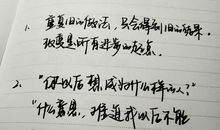 1. 重复旧的做法，只会得到旧的结果，
改变是所有进步的起点。
2. "你以后想成为什么样的人？"
"什么意思，难道我以后不能